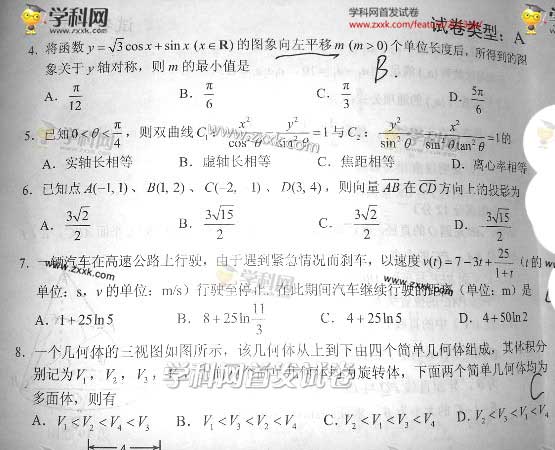 学科网 www.zxxk.com
学科网首发试卷
www.zxxk.com/feature/
试卷类型：A
4. 将函数 y = √3 cos x + sin x (x ∈ R) 的图象向左平移 m (m > 0) 个单位长度后，所得到的图
象关于 y 轴对称，则 m 的最小值是
B.
A. π/12 B. π/6 C. π/3 D. 5π/6
5. 已知 0 < θ < π/4，则双曲线 C₁: x²/cos²θ − y²/sin²θ = 1 与 C₂: y²/sin²θ − x²/sin²θtan²θ = 1 的
A. 实轴长相等 B. 虚轴长相等 C. 焦距相等 D. 离心率相等
6. 已知点 A(−1, 1)、B(1, 2)、C(−2, 1)、D(3, 4)，则向量 AB 在 CD 方向上的投影为
A. 3√2/2 B. 3√15/2 C. −3√2/2 D. −3√15/2
7. 一辆汽车在高速公路上行驶，由于遇到紧急情况而刹车，以速度 v(t) = 7 − 3t + 25/(1+t)（t 的
单位：s，v 的单位：m/s）行驶至停止。在此期间汽车继续行驶的距离（单位：m）是
A. 1 + 25 ln 5 B. 8 + 25 ln 11/3 C. 4 + 25 ln 5 D. 4 + 50 ln 2
8. 一个几何体的三视图如图所示，该几何体从上到下由四个简单几何体组成，其体积分
别记为 V₁，V₂，V₃，旋转体，下面两个简单几何体均为
学科网首发试卷
多面体，则有
C
A. V₁ < V₂ < V₄ < V₃ B. V₁ < V₃ < V₂ < V₄ C. V₂ < V₁ < V₃ < V₄ D. V₂ < V₃ < V₁ < V₄
4